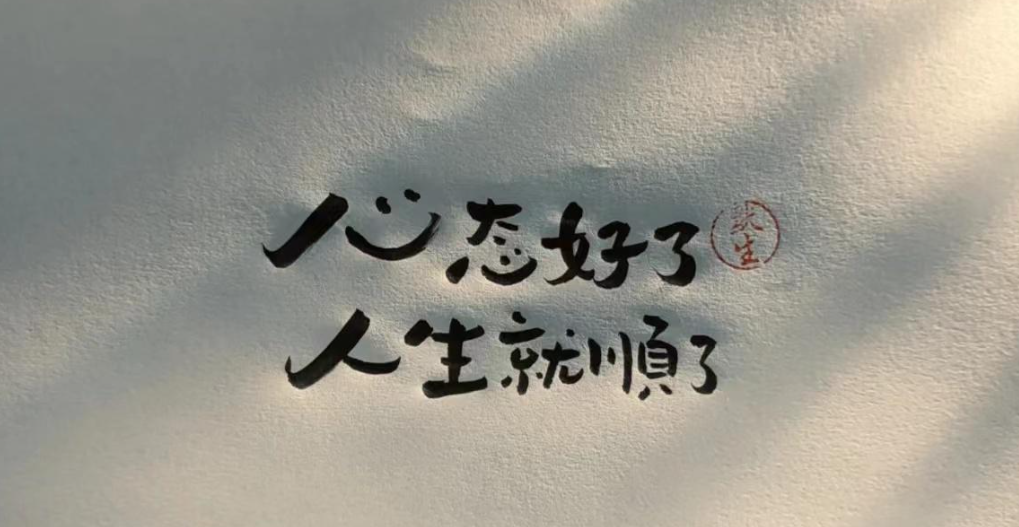 心态好了
人生就順了